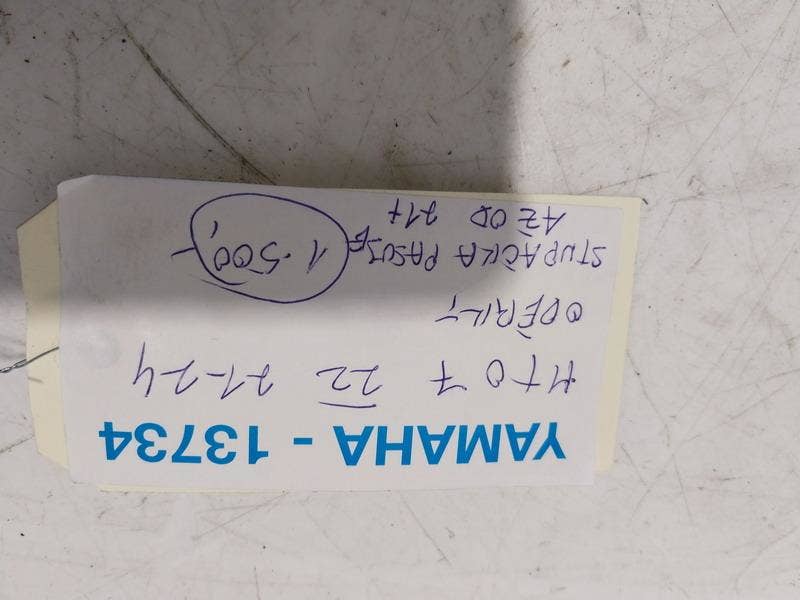 YAMAHA - 13734
MT07 22 21-24
ODĚRKY
STUPAČKA PASUJE 1.500,-
AŽ OD 21+